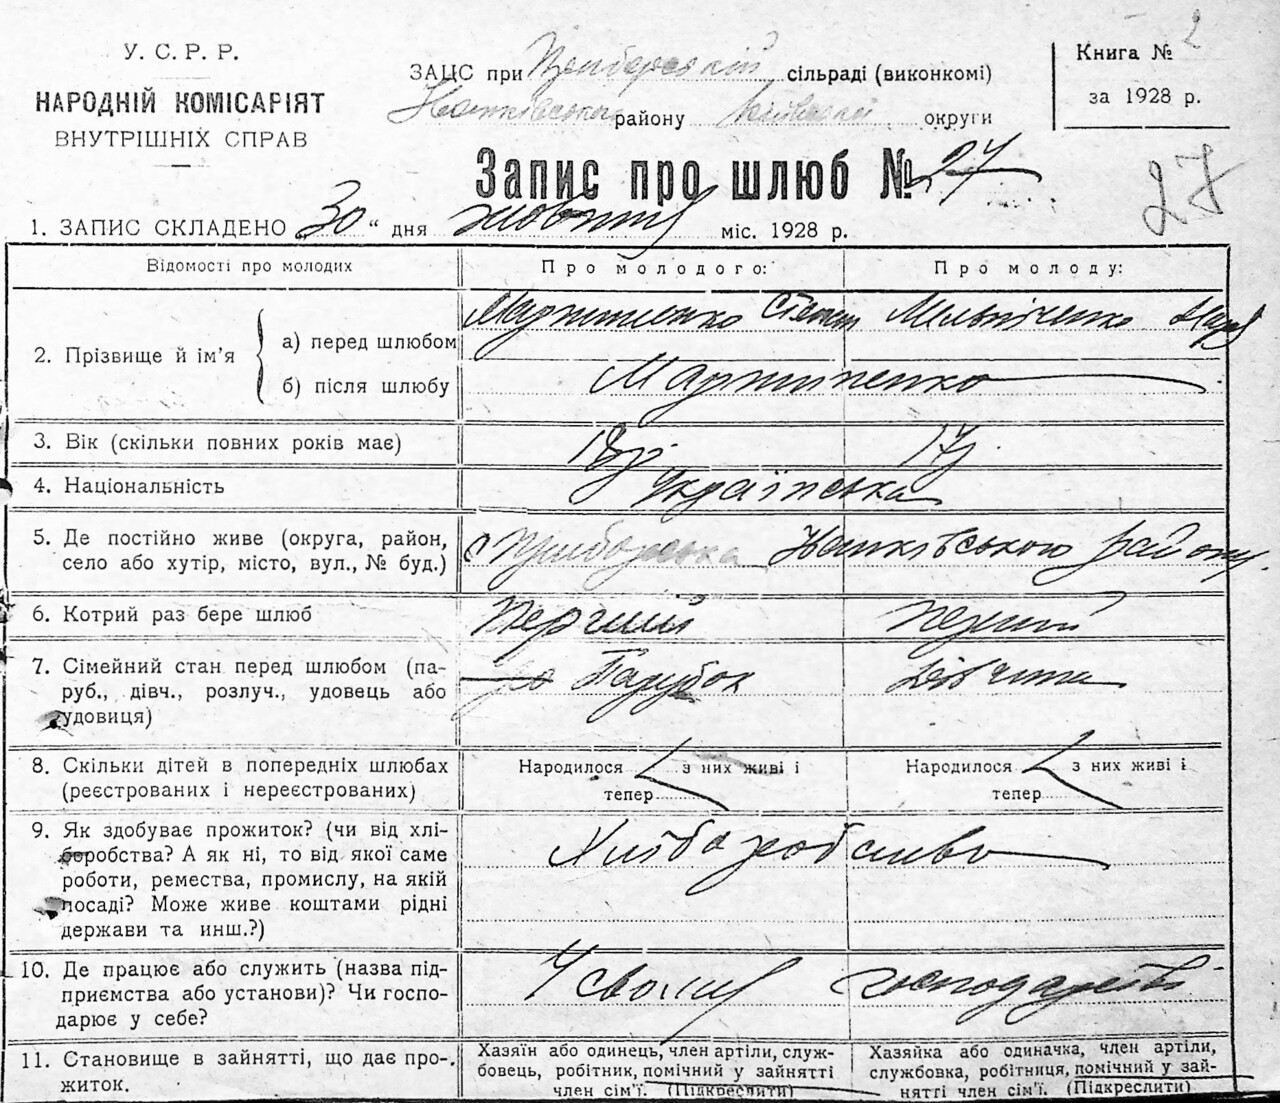 У. С. Р. Р.
НАРОДНІЙ КОМІСАРІЯТ
ВНУТРІШНІХ СПРАВ
ЗАЦС при сільраді (виконкомі)
району округи
Книга № 2
за 1928 р.
Запис про шлюб № 27
27
1. ЗАПИС СКЛАДЕНО „30“ дня жовтня міс. 1928 р.
Відомості про молодих
Про молодого:
Про молоду:
2. Прізвище й ім’я
а) перед шлюбом
Мартиненко Степан
Мельниченко
б) після шлюбу
Мартиненко
3. Вік (скільки повних років має)
18 р.
17 р.
4. Національність
Українська
5. Де постійно живе (округа, район,
село або хутір, місто, вул., № буд.)
с району
6. Котрий раз бере шлюб
Перший
перший
7. Сімейний стан перед шлюбом (па-
руб., дівч., розлуч., удовець або
удовиця)
Парубок
дівчина
8. Скільки дітей в попередніх шлюбах
(реєстрованих і нереєстрованих)
Народилося з них живі і
тепер
Народилося з них живі і
тепер
9. Як здобуває прожиток? (чи від хлі-
боробства? А як ні, то від якої саме
роботи, ремества, промислу, на якій
посаді? Може живе коштами рідні
держави та инш.?)
10. Де працює або служить (назва під-
приємства або установи)? Чи госпо-
дарює у себе?
У своїм господарстві
11. Становище в зайнятті, що дає про-
житок.
Хазяїн або одинець, член артілі, служ-
бовець, робітник, помічний у зайнятті
член сім’ї. (Підкреслити)
Хазяйка або одиначка, член артіли,
службовка, робітниця, помічний у зай-
нятті член сім’ї. (Підкреслити)